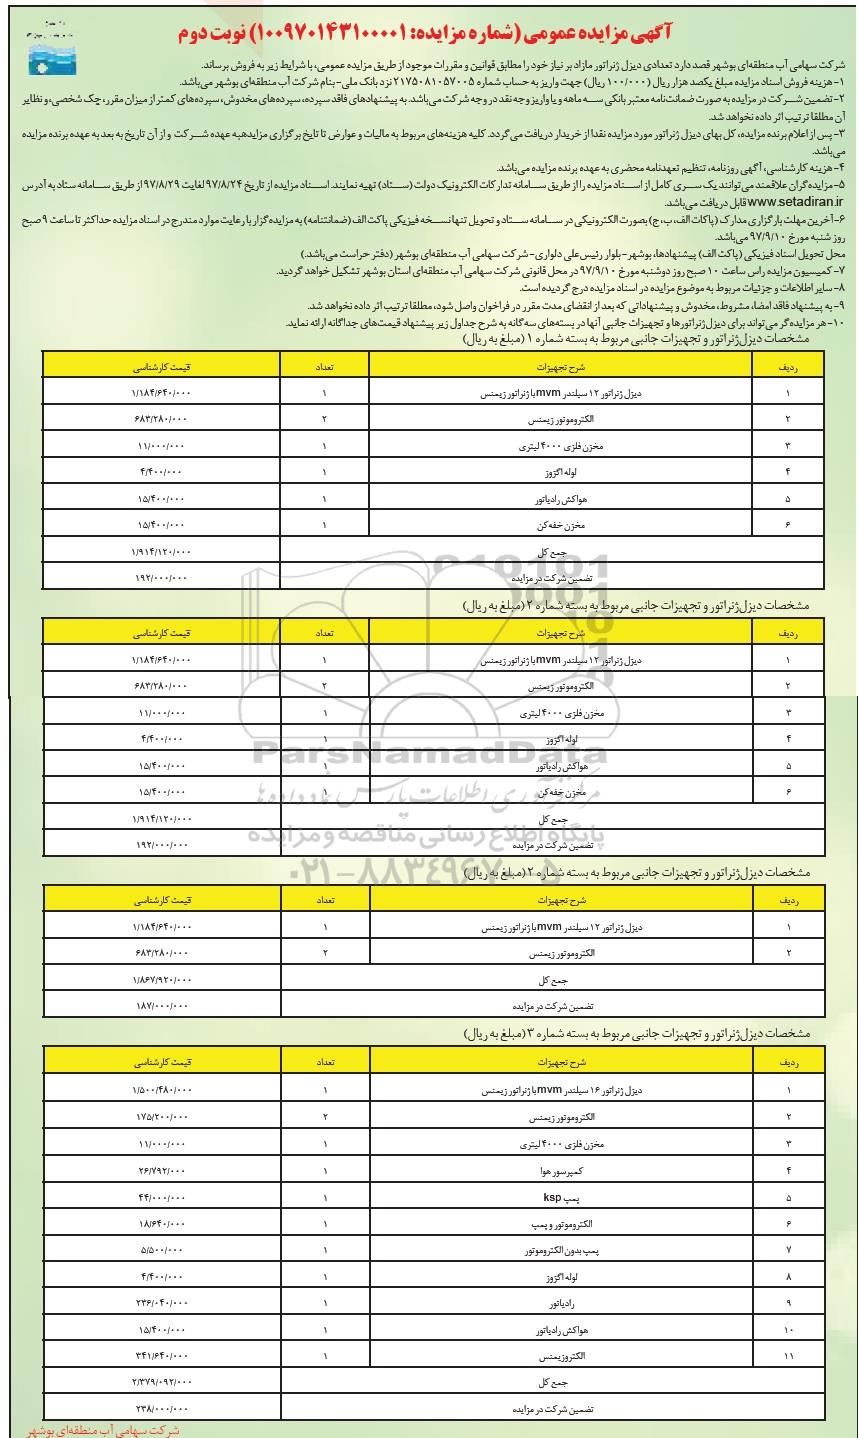 آگهی مزایده عمومی (شماره مزایده: ۱۰۰۹۷۰۱۴۳۱۰۰۰۰۱) نوبت دوم
شرکت سهامی آب منطقه‌ای بوشهر قصد دارد تعدادی دیزل ژنراتور مازاد بر نیاز خود را مطابق قوانین و مقررات موجود از طریق مزایده عمومی، با شرایط زیر به فروش برساند.
۱- هزینه فروش اسناد مزایده مبلغ یکصد هزار ریال (۱۰۰/۰۰۰ ریال) جهت واریز به حساب شماره ۲۱۷۵۰۸۱۰۵۷۰۰۵ نزد بانک ملی- بنام شرکت آب منطقه‌ای بوشهر می‌باشد.
۲- تضمین شـــرکت در مزایده به صورت ضمانت‌نامه معتبر بانکی ســـه ماهه و یا واریز وجه نقد در وجه شرکت می‌باشد. به پیشنهادهای فاقد سپرده، سپرده‌های مخدوش، سپرده‌های کمتر از میزان مقرر، چک شخصی، و نظایر
آن مطلقا ترتیب اثر داده نخواهد شد.
۳- پس از اعلام برنده مزایده، کل بهای دیزل ژنراتور مورد مزایده نقدا از خریدار دریافت می‌گردد. کلیه هزینه‌های مربوط به مالیات و عوارض تا تایخ برگزاری مزایدهبه عهده شـــرکت و از آن تاریخ به بعد به عهده برنده مزایده
می‌باشد.
۴- هزینه کارشناسی، آگهی روزنامه، تنظیم تعهدنامه محضری به عهده برنده مزایده می‌باشد.
۵- مزایده‌گران علاقمند می‌توانند یک ســـری کامل از اســـناد مزایده را از طریق ســـامانه تدارکات الکترونیک دولت (ســـتاد) تهیه نمایند. اســـناد مزایده از تاریخ ۹۷/۸/۲۴ لغایت ۹۷/۸/۲۹ از طریق ســـامانه ستاد به آدرس
www.setadiran.ir قابل دریافت می‌باشد.
۶- آخرین مهلت بارگزاری مدارک (پاکات الف، ب، ج) بصورت الکترونیکی در سـامانه ســـتاد و تحویل تنها نســـخه فیزیکی پاکت الف (ضمانتنامه) به مزایده گزار با رعایت موارد مندرج در اسناد مزایده حداکثر تا ساعت ۹ صبح
روز شنبه مورخ ۹۷/۹/۱۰ می‌باشد.
محل تحویل اسناد فیزیکی (پاکت الف) پیشنهادها، بوشهر- بلوار رئیس علی دلواری- شرکت سهامی آب منطقه‌ای بوشهر (دفتر حراست می‌باشد.)
۷- کمیسیون مزایده راس ساعت ۱۰ صبح روز دوشنبه مورخ ۹۷/۹/۱۰ در محل قانونی شرکت سهامی آب منطقه‌ای استان بوشهر تشکیل خواهد گردید.
۸- سایر اطلاعات و جزئیات مربوط به موضوع مزایده در اسناد مزایده درج گردیده است.
۹- به پیشنهاد فاقد امضا، مشروط، مخدوش و پیشنهاداتی که بعد از انقضای مدت مقرر در فراخوان واصل شود، مطلقا ترتیب اثر داده نخواهد شد.
۱۰- هر مزایده‌گر می‌تواند برای دیزل‌ژنراتورها و تجهیزات جانبی آنها در بسته‌های سه‌گانه به شرح جداول زیر پیشنهاد قیمت‌های جداگانه ارائه نماید.
مشخصات دیزل‌ژنراتور و تجهیزات جانبی مربوط به بسته شماره ۱ (مبلغ به ریال)
ردیف شرح تجهیزات تعداد قیمت کارشناسی
۱ دیزل ژنراتور ۱۲ سیلندر mvm با ژنراتور زیمنس ۱ ۱/۱۸۴/۶۴۰/۰۰۰
۲ الکتروموتور زیمنس ۲ ۶۸۳/۲۸۰/۰۰۰
۳ مخزن فلزی ۴۰۰۰ لیتری ۱ ۱۱/۰۰۰/۰۰۰
۴ لوله اگزوز ۱ ۴/۴۰۰/۰۰۰
۵ هواکش رادیاتور ۱ ۱۵/۴۰۰/۰۰۰
۶ مخزن خفه‌کن ۱ ۱۵/۴۰۰/۰۰۰
جمع کل ۱/۹۱۴/۱۲۰/۰۰۰
تضمین شرکت در مزایده ۱۹۲/۰۰۰/۰۰۰
مشخصات دیزل‌ژنراتور و تجهیزات جانبی مربوط به بسته شماره ۲ (مبلغ به ریال)
ردیف شرح تجهیزات تعداد قیمت کارشناسی
۱ دیزل ژنراتور ۱۲ سیلندر mvm با ژنراتور زیمنس ۱ ۱/۱۸۴/۶۴۰/۰۰۰
۲ الکتروموتور زیمنس ۲ ۶۸۳/۲۸۰/۰۰۰
۳ مخزن فلزی ۴۰۰۰ لیتری ۱ ۱۱/۰۰۰/۰۰۰
۴ لوله اگزوز ۱ ۴/۴۰۰/۰۰۰
۵ هواکش رادیاتور ۱ ۱۵/۴۰۰/۰۰۰
۶ مخزن خفه‌کن ۱ ۱۵/۴۰۰/۰۰۰
جمع کل ۱/۹۱۴/۱۲۰/۰۰۰
تضمین شرکت در مزایده ۱۹۲/۰۰۰/۰۰۰
ParsNamadData
مرکز فرآوری اطلاعات پارس نماد داده‌ها
پایگاه اطلاع رسانی مناقصه و مزایده
۰۲۱-۸۸۳۴۹۶۷۰-۵
مشخصات دیزل‌ژنراتور و تجهیزات جانبی مربوط به بسته شماره ۲ (مبلغ به ریال)
ردیف شرح تجهیزات تعداد قیمت کارشناسی
۱ دیزل ژنراتور ۱۲ سیلندر mvm با ژنراتور زیمنس ۱ ۱/۱۸۴/۶۴۰/۰۰۰
۲ الکتروموتور زیمنس ۲ ۶۸۳/۲۸۰/۰۰۰
جمع کل ۱/۸۶۷/۹۲۰/۰۰۰
تضمین شرکت در مزایده ۱۸۷/۰۰۰/۰۰۰
مشخصات دیزل‌ژنراتور و تجهیزات جانبی مربوط به بسته شماره ۳ (مبلغ به ریال)
ردیف شرح تجهیزات تعداد قیمت کارشناسی
۱ دیزل ژنراتور ۱۶ سیلندر mvm با ژنراتور زیمنس ۱ ۱/۵۰۰/۴۸۰/۰۰۰
۲ الکتروموتور زیمنس ۲ ۱۷۵/۲۰۰/۰۰۰
۳ مخزن فلزی ۴۰۰۰ لیتری ۱ ۱۱/۰۰۰/۰۰۰
۴ کمپرسور هوا ۱ ۲۶/۷۹۲/۰۰۰
۵ پمپ ksp ۱ ۴۴/۰۰۰/۰۰۰
۶ الکتروموتور و پمپ ۱ ۱۸/۶۴۰/۰۰۰
۷ پمپ بدون الکتروموتور ۱ ۵/۵۰۰/۰۰۰
۸ لوله اگزوز ۱ ۴/۴۰۰/۰۰۰
۹ رادیاتور ۱ ۲۳۶/۰۴۰/۰۰۰
۱۰ هواکش رادیاتور ۱ ۱۵/۴۰۰/۰۰۰
۱۱ الکتروزیمنس ۱ ۳۴۱/۶۴۰/۰۰۰
جمع کل ۲/۳۷۹/۰۹۲/۰۰۰
تضمین شرکت در مزایده ۲۳۸/۰۰۰/۰۰۰
شرکت سهامی آب منطقه‌ای بوشهر